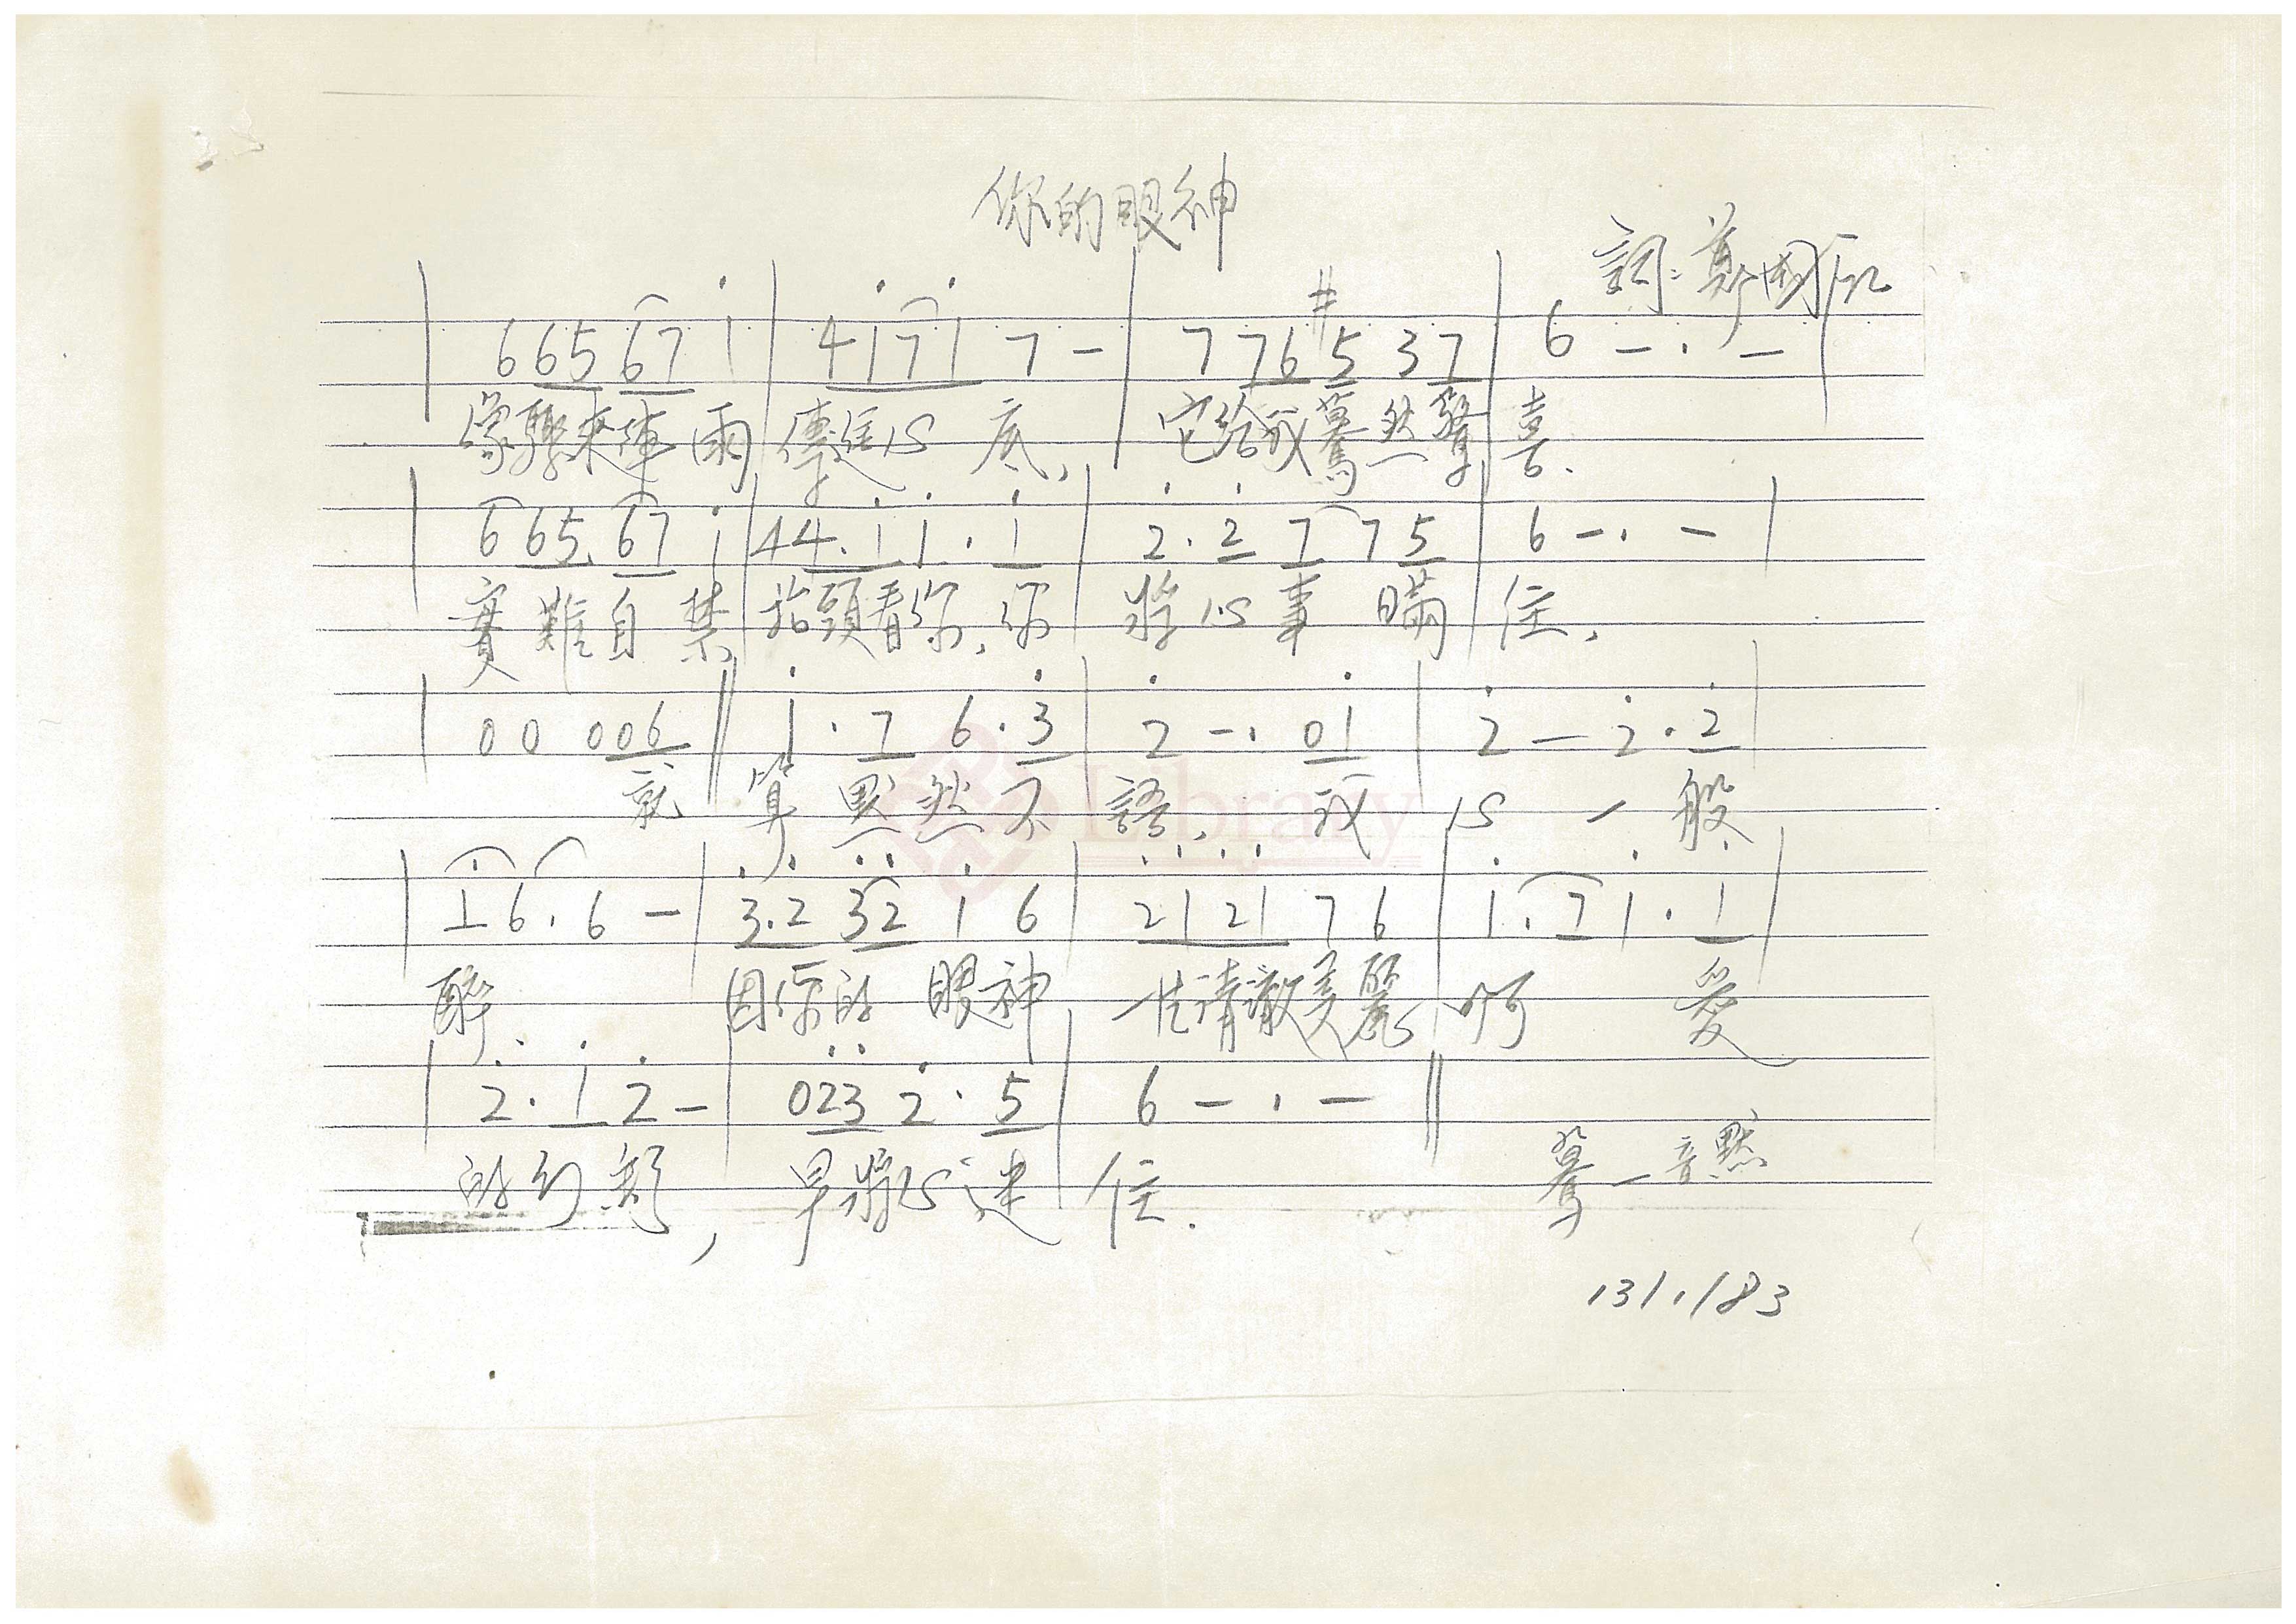 你的眼神
詞: 鄭國江
6 6 5 6 7 i | 4 i 7 i 7 – | 7 7 6 #5 3 7 | 6 – · – |
像驟來陣雨 傳達心底, 它給我驀然驚喜.
6 6 5 6 7 i | 4 4 . i i . i | 2 . 2 7 7 5 | 6 – · – |
實難自禁 抬頭看你, 你將心事瞞住,
0 0 0 0 6 || i . 7 6 . 3 | 2 – · 0 i | 2 – 2 . 2 |
就算默然不語, 我心一般
i 6 . 6 – | 3 . 2 3 2 i 6 | 2 i 2 i 7 6 | i . 7 i . i |
醉 因你的眼神 清澈美麗 啊 愛
2 . i 2 – | 0 2 3 2 . 5 | 6 – · – ||
的幻, 早將心迷住.
一音
131.183
Library